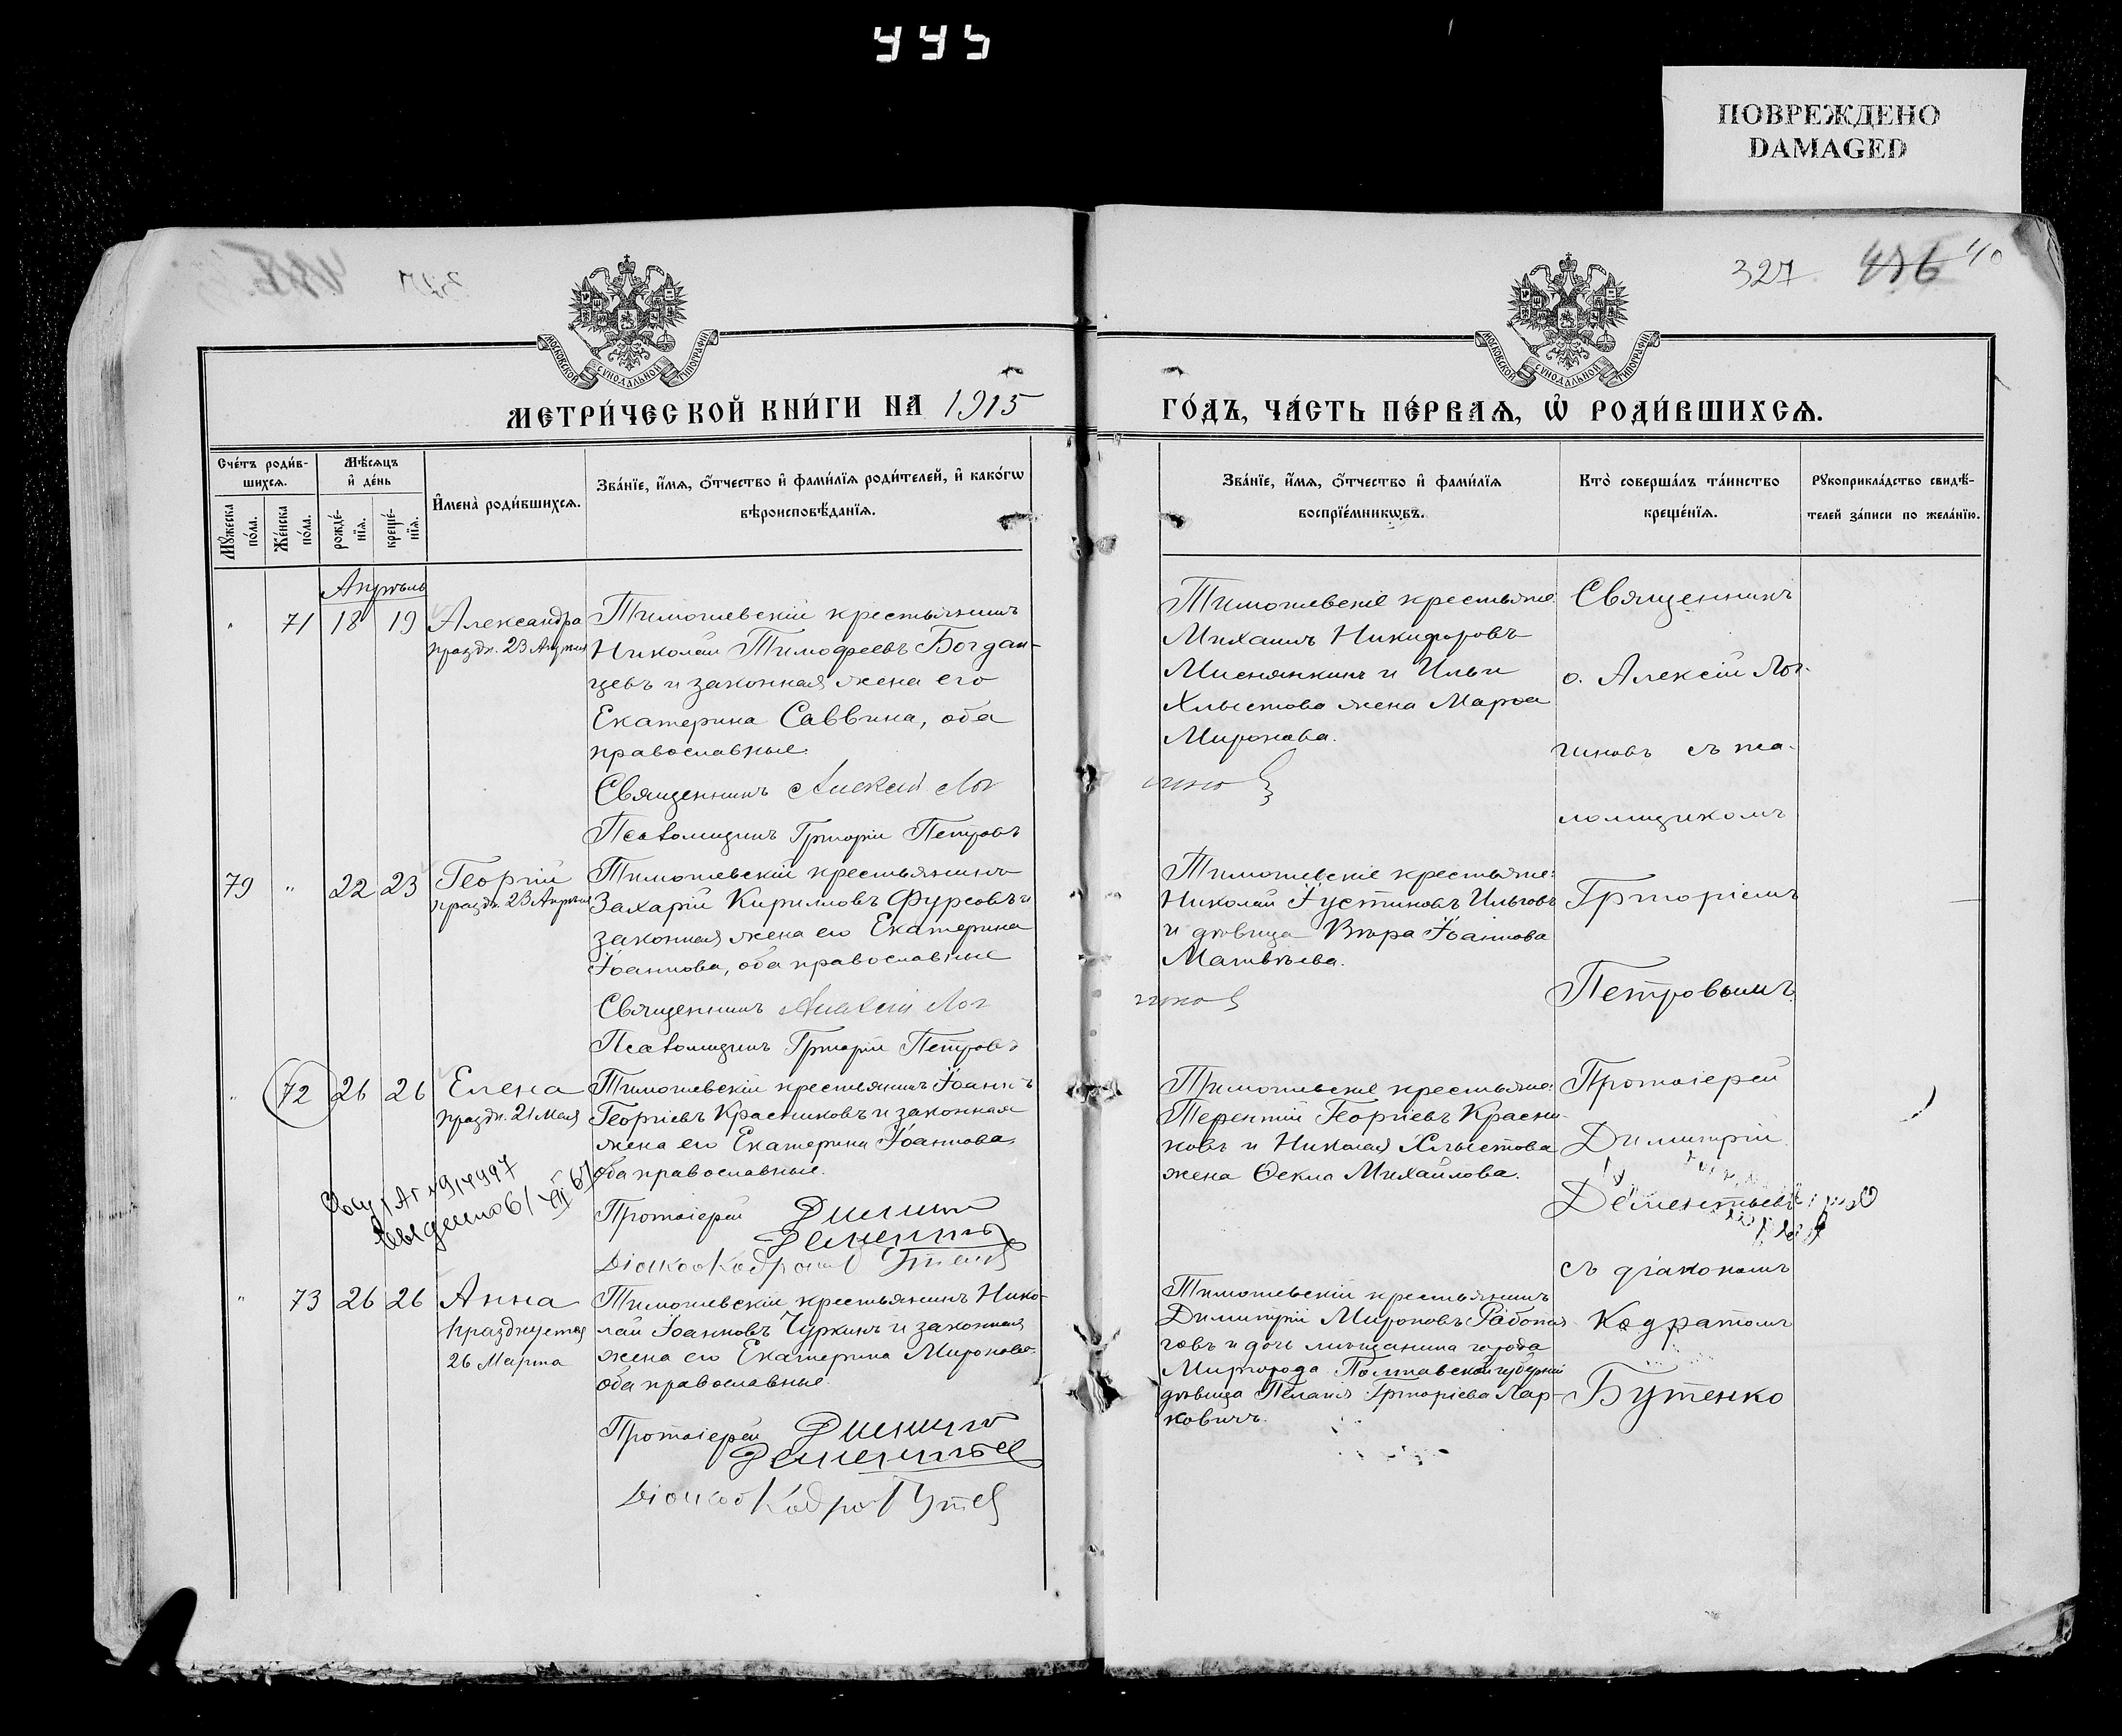 445
ПОВРЕЖДЕНО
DAMAGED
327 436 40
МОСКОВСКОЙ СѴНОДАЛЬНОЙ ТИПОГРАФІИ
МОСКОВСКОЙ СѴНОДАЛЬНОЙ ТИПОГРАФІИ
МЕТРИ́ЧЕСКОЙ КНИ́ГИ НА 1915
ГО́ДЪ, ЧА́СТЬ ПЕ́РВАѦ, Ѡ҆ РОДИ́ВШИХСѦ.
Сче́тъ роди́в-
шихсѧ.
Мꙋ́жеска по́ла.
Же́нска по́ла.
Мѣ́сѧцъ
и҆ де́нь
рожде́-
нїѧ.
креще́-
нїѧ.
И҆мена̀ роди́вшихсѧ.
Зва́нїе, и҆́мѧ, ѻ҆́тчество и҆ фами́лїѧ роди́телей, и҆ како́гѡ
вѣроисповѣ́данїѧ.
Зва́нїе, и҆́мѧ, ѻ҆́тчество и҆ фами́лїѧ
воспрїе́мникѡвъ.
Кто̀ соверша́лъ та́инство
креще́нїѧ.
Рꙋкоприкла́дство свидѣ́-
телей за́писи по жела́нїю.
Апрѣль
" 71 18 19
Александра
праздн. 23 Апрѣля
Тимошевскій крестьянинъ
Николай Тимофеевъ Богдан-
цевъ и законная жена его
Екатерина Саввина, оба
православные.
Священникъ Алексій Лог
гинов
Псаломщикъ Григорій Петровъ
Тимошевскіе крестьяне:
Михаилъ Никифоровъ
и Ильи
Хлыстова жена Марѳа
Миронова.
Священникъ
о. Алексій Лог-
гиновъ съ пса-
ломщикомъ
Григоріемъ
Петровымъ
79 " 22 23
Георгій
праздн. 23 Апрѣля
Тимошевскій крестьянинъ
Захарій Кирилловъ Фурсовъ и
законная жена его Екатерина
Іоаннова, оба православные
Священникъ Алексій Лог
гинов
Псаломщикъ Григорій Петровъ
Тимошевскіе крестьяне:
Николай Іустиновъ Ильговъ
и дѣвица Вѣра Іоаннова
Матвѣева.
" 72 26 26
Елена
праздн. 21 Мая
Тимошевскій крестьянинъ Іоаннъ
Георгіевъ Красниковъ и законная
жена его Екатерина Іоаннова,
оба православные.
Протоіерей Димитрій
Дементьевъ
Тимошевскіе крестьяне:
Терентій Георгіевъ Красни-
ковъ и Николая Хлыстова
жена Ѳекла Михайлова.
Протоіерей
Димитрій
Дементьевъ
съ діакономъ
Кодратомъ
Бутенко
" 73 26 26
Анна
празднуется
26 Марта
Тимошевскій крестьянинъ Нико-
лай Іоанновъ Чуркинъ и законная
жена его Екатерина Миронова
оба православные.
Протоіерей Димитрій
Дементьевъ
Тимошевскій крестьянинъ
Димитрій Мироновъ
и дочь мѣщанина города
Миргорода Полтавской губерніи
дѣвица Пелагія Григоріева Мар-
ковичъ.